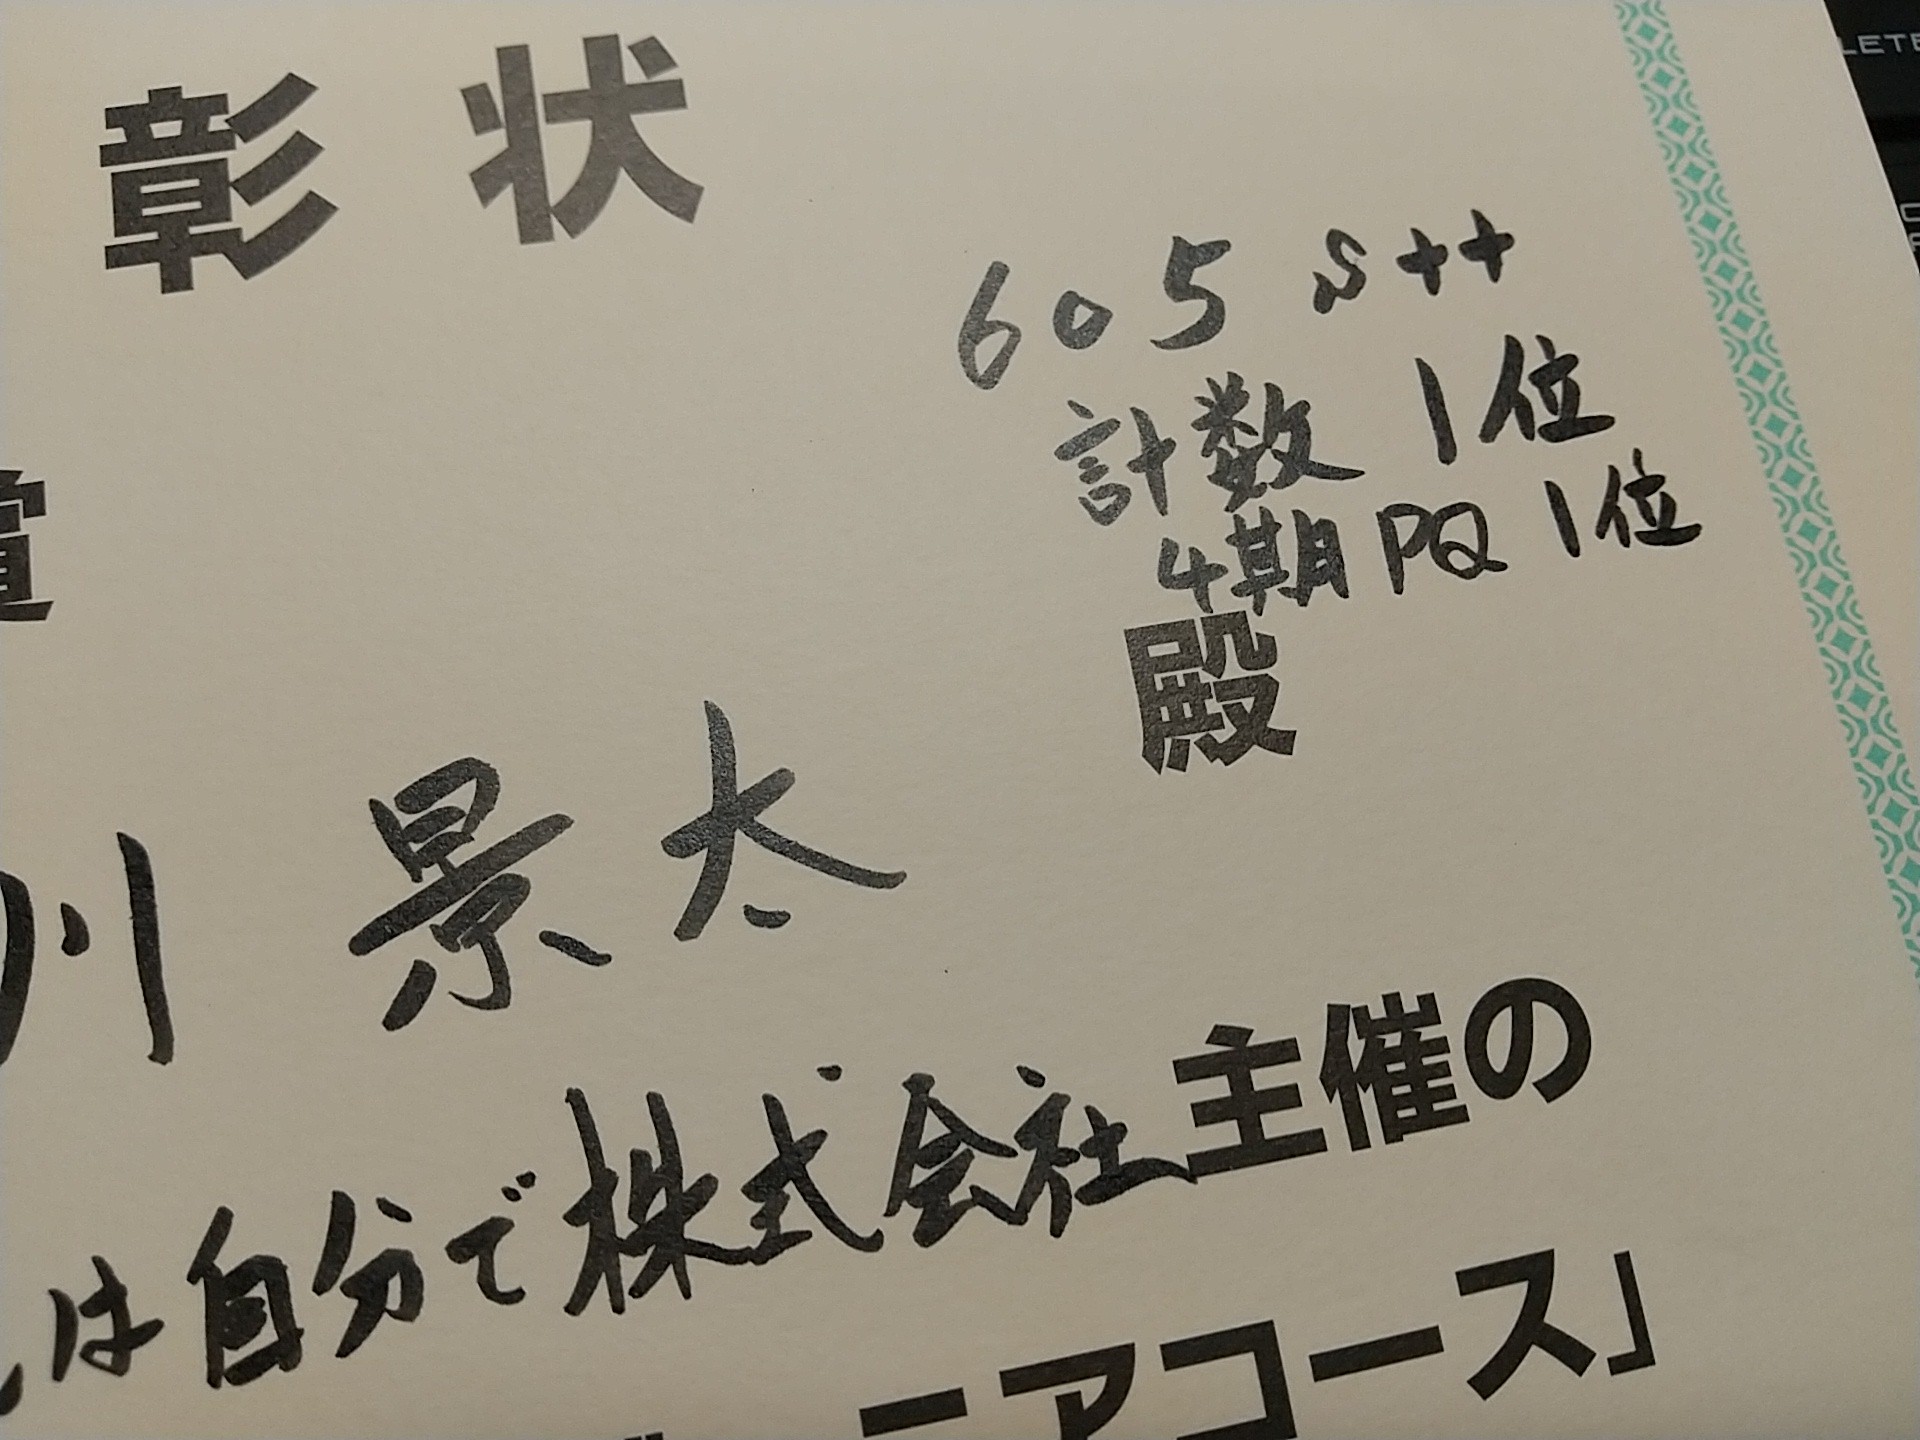 彰状
605 S++
計数 1位
4期 PQ 1位
賞
殿
川 景太
は自分で株式会社主催の
ニアコース」